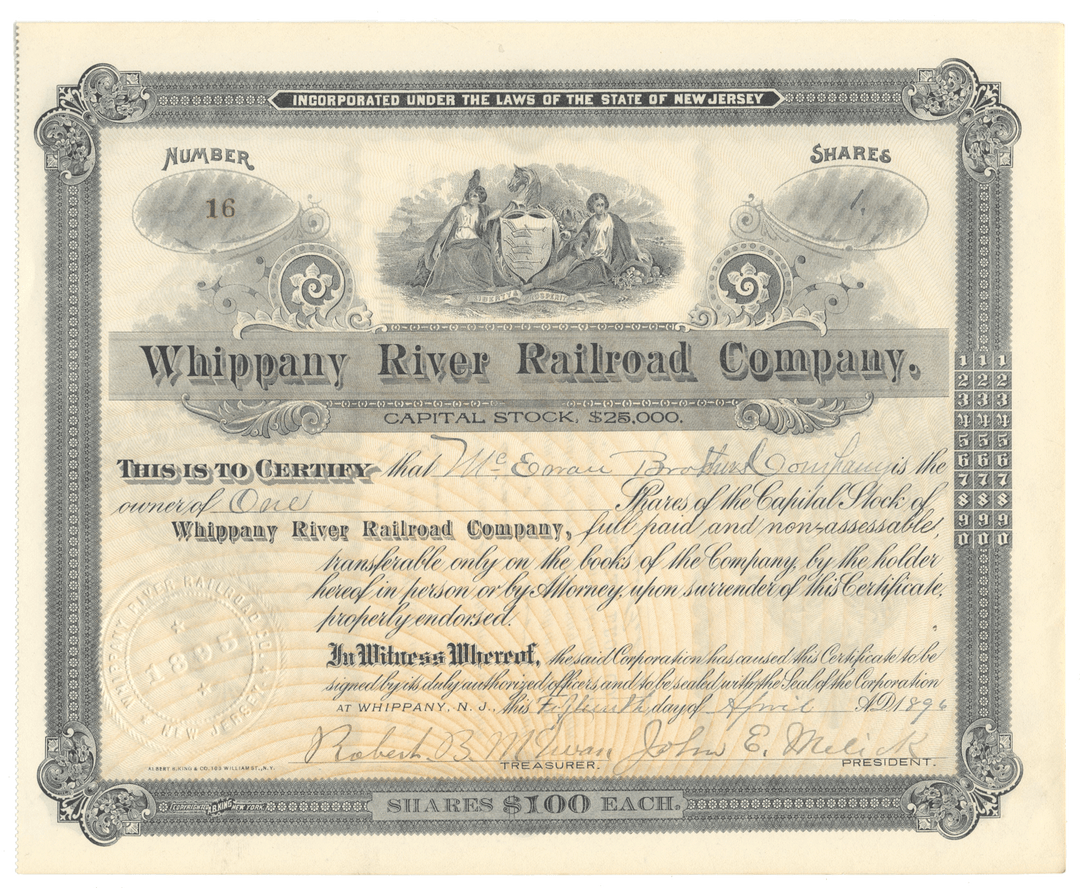 INCORPORATED UNDER THE LAWS OF THE STATE OF NEW JERSEY
NUMBER
16
SHARES
1.
LIBERTY & PROSPERITY
Whippany River Railroad Company.
CAPITAL STOCK, $25,000.
1 1 1
2 2 2
3 3 3
4 4 4
5 5 5
6 6 6
7 7 7
8 8 8
9 9 9
0 0 0
THIS IS TO CERTIFY that McEwan Brothers Company is the
owner of One Shares of the Capital Stock of
Whippany River Railroad Company, full paid and non-assessable,
transferable only on the books of the Company, by the holder
hereof in person or by Attorney, upon surrender of this Certificate,
properly endorsed.
In Witness Whereof, the said Corporation has caused this Certificate to be
signed by its duly authorized officers, and to be sealed with the Seal of the Corporation
AT WHIPPANY, N. J., this Fifteenth day of April A.D. 1896
WHIPPANY RIVER RAILROAD CO.
1895
NEW JERSEY
Robert B. McEwan John E. Melick
TREASURER. PRESIDENT.
ALBERT B. KING & CO., 105 WILLIAM ST., N.Y.
COPYRIGHTED A.B. KING NEW YORK.
SHARES $100 EACH.